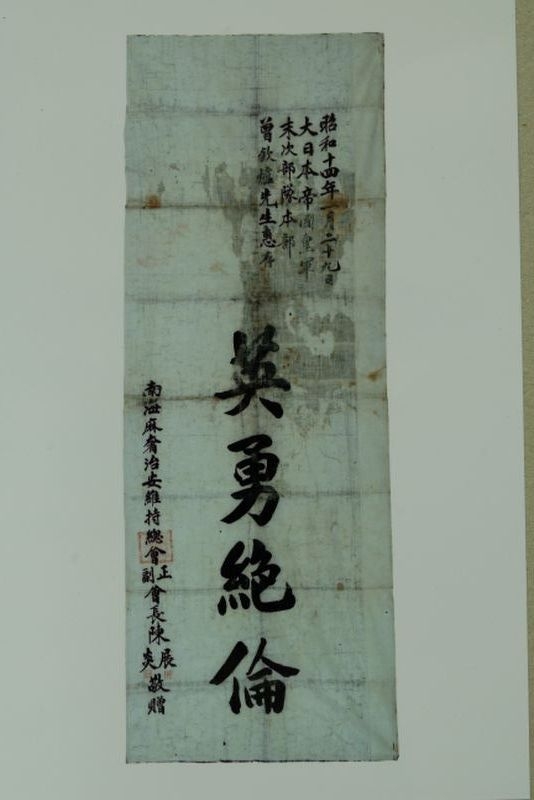 昭和十四年一月二十九日
大日本帝國皇軍
末次部隊本部
曾欽爐先生惠存
英勇絶倫
南海麻奢治安維持總會正副會長陳展炎敬贈